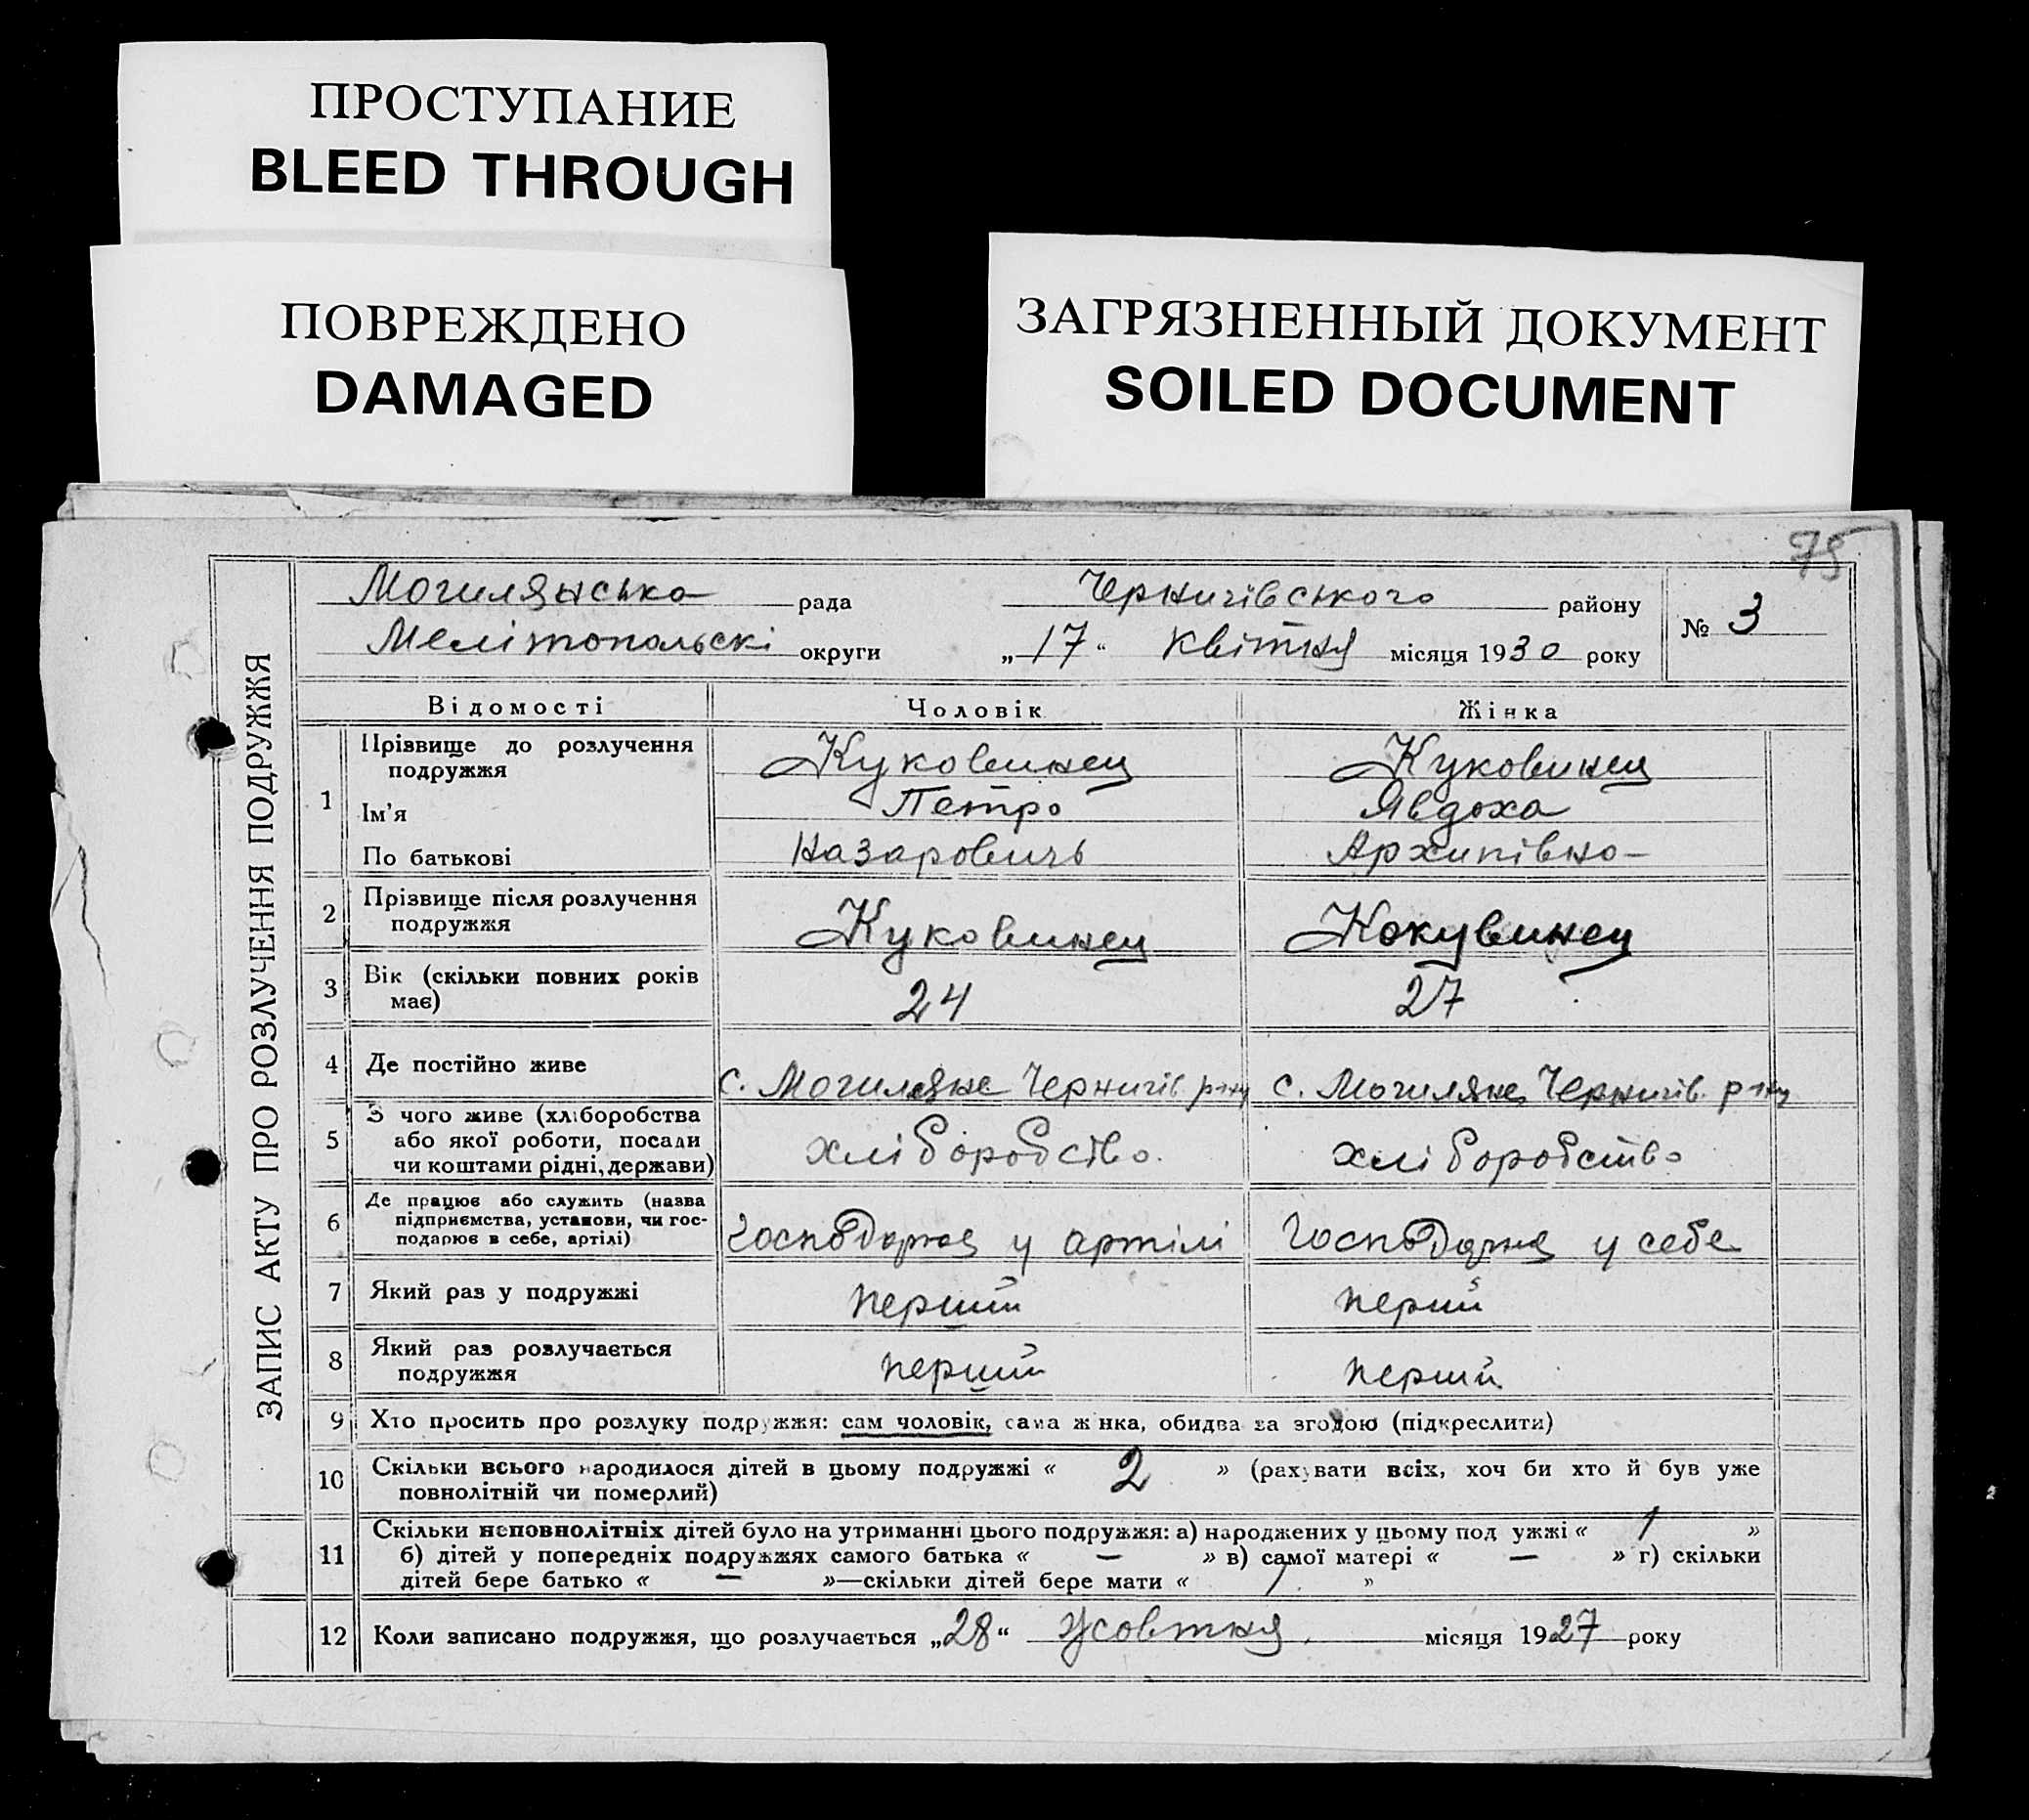 ПРОСТУПАНИЕ
BLEED THROUGH
ПОВРЕЖДЕНО
DAMAGED
ЗАГРЯЗНЕННЫЙ ДОКУМЕНТ
SOILED DOCUMENT
75
ЗАПИС АКТУ ПРО РОЗЛУЧЕННЯ ПОДРУЖЖЯ
Могилянсько рада Чернигівського району
№ 3
Мелітопольскі округи „17“ квітня місяця 1930 року
Відомості Чоловік Жінка
1 Прізвище до розлучення подружжя Куковинец Куковинец
Ім'я Петро Явдоха
По батькові Назаровичь Архипівно-
2 Прізвище після розлучення
подружжя Куковинец Кокувинец
3 Вік (скільки повних років
має) 24 27
4 Де постійно живе с. Могиляне Чернигів р-ну с. Могиляне Чернигів. р-ну
5 З чого живе (хліборобства
або якої роботи, посади
чи коштами рідні, держави) хліборобство. хліборобство
6 Де працює або служить (назва
підприємства, установи, чи гос-
подарює в себе, артілі) господарює у артілі господарює у себе
7 Який раз у подружжі перший перши
8 Який раз розлучається
подружжя перший перший
9 Хто просить про розлуку подружжя: сам чоловік, сама жінка, обидва за згодою (підкреслити)
10 Скільки всього народилося дітей в цьому подружжі « 2 » (рахувати всіх, хоч би хто й був уже
повнолітній чи померлий)
11 Скільки неповнолітніх дітей було на утриманні цього подружжя: а) народжених у цьому под ужжі « 1 »
б) дітей у попередніх подружжях самого батька « — » в) самої матері « — » г) скільки
дітей бере батько « — »—скільки дітей бере мати « 1. »
12 Коли записано подружжя, що розлучається „28“ жовтня. місяця 1927 року